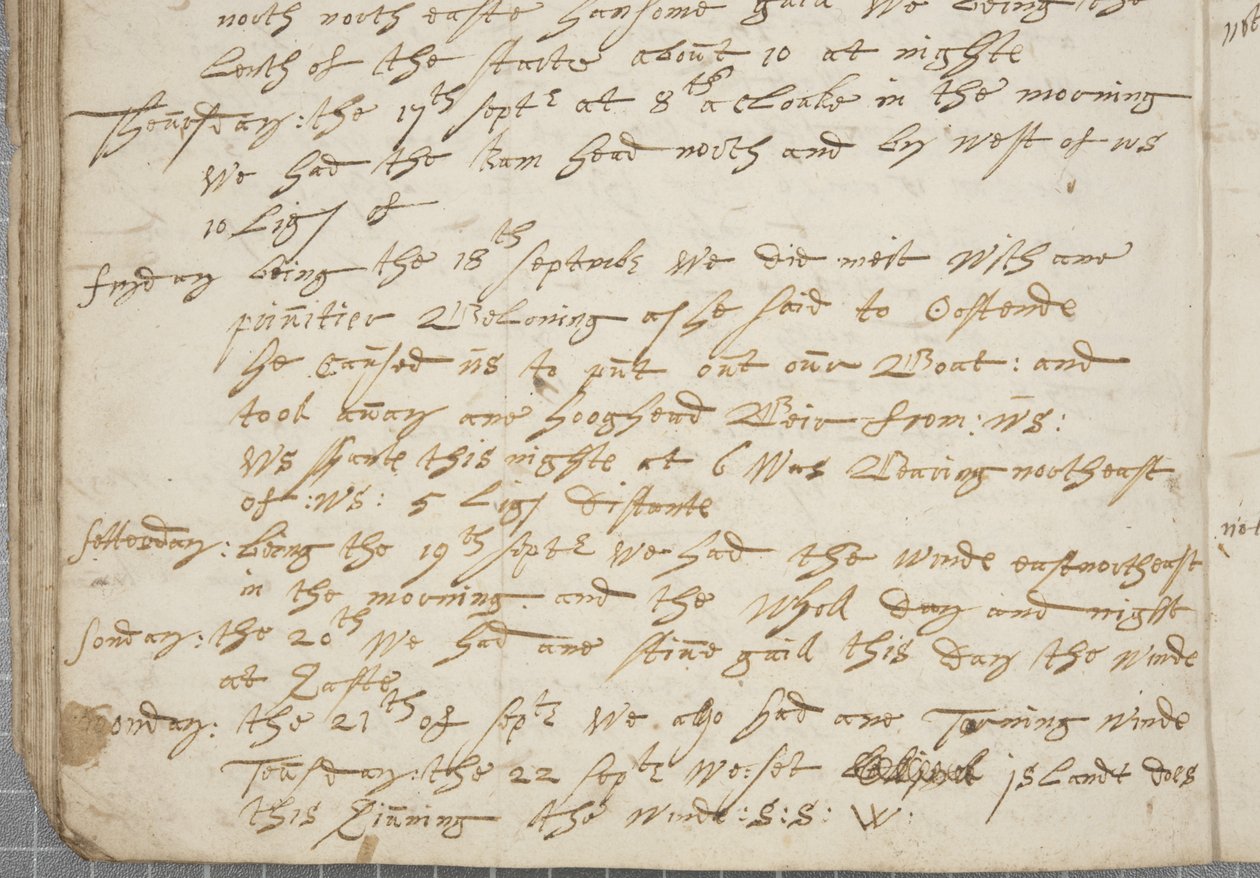 north north easte hansome gaill We being the
lenth of the starte about 10 at nighte
Theursday: the 17th septr at 8th a cloake in the morning
We had the Ram head north and by west of us
10 Ligs of
fryday being the 18th septmbr We did meit With ane
privitier Beloning as he said to Oostende
he Caused us to put out our Boat: and
took away ane hooghead Beir from: us:
this nighte at 6 Was Bearing northeast
of: Ws: 5 Ligs distante
setterday: being the 19th septr We had the Winde eastnortheast
in the morning and the Wholl day and night
sonday: the 20th We had ane stive gaill this day the Winde
at Easte
moonday: the 21th of septr We also had ane Torning Winde
Teusday: the 22 septr We: set islandt does
this Eivning the Winde: S: S: W:
not
not